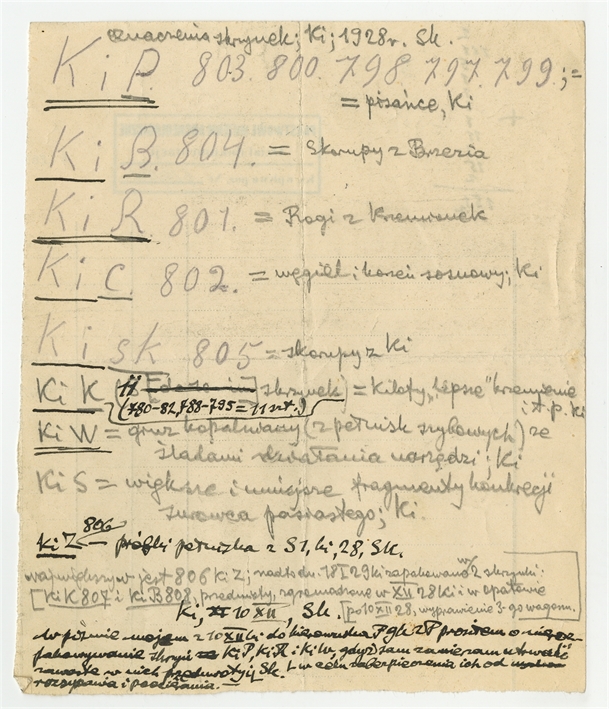 oznaczenia skrzynek; Ki; 1928r. Sk.
Ki P. 803. 800. 798. 797. 799.; =
= pisańce, Ki
Ki B. 804. = Skorupy z Brzezia
Ki R. 801. = Rogi z Krzemionek
Ki C. 802. = węgiel i korzeń sosnowy; Ki
Ki sk 805 = skorupy z Ki
Ki K (11 skrzynek) = Kiloty „lepsze" krzemienie
(780-82, 788-795 = 11 szt.) i t. p. Ki
Ki W = gruz kopalniany (z pełnisk szybowych) ze
śladami działania narzędzi; Ki
Ki S = większe i mniejsze fragmenty konkrecji
surowca pasiastego; Ki.
806
Ki Z próbki pełniska z S1, Ki, 28, Sk.
największy w jest 806 Ki Z; nadto dn. 18 I 29 Ki zapakowano w 2 skrzynki:
[Ki K 807 i Ki B 808, przedmioty, zgromadzone w XII 28 Ki i w Opatowie
Ki, 10 XII, Sk. [po 10 XII 28, wyprawienie 3-go wagonu.
w piśmie mojem z 10 XII Ki do kierownika PgK ZP prosiłem o nieroz-
pakowywanie skrzyń = Ki P, Ki R i Ki W, gdyż sam zamierzam utrwalić
zawarte w nich przedmioty; Sk. w celu zabezpieczenia ich od
rozsypania i pocierania. —